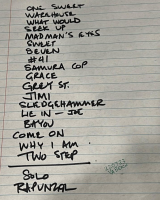 ONE SWEET
WAREHOUSE
WHAT WOULD
SEEK UP
MADMAN'S EYES
SWEET
SEVEN
#41
SAMURAI COP
GRACE
GREY ST.
JIMI
SLEDGEHAMMER
LIE IN — JOE
BAYOU
COME ON
WHY I AM
TWO STEP
SOLO
RAPUNZAL